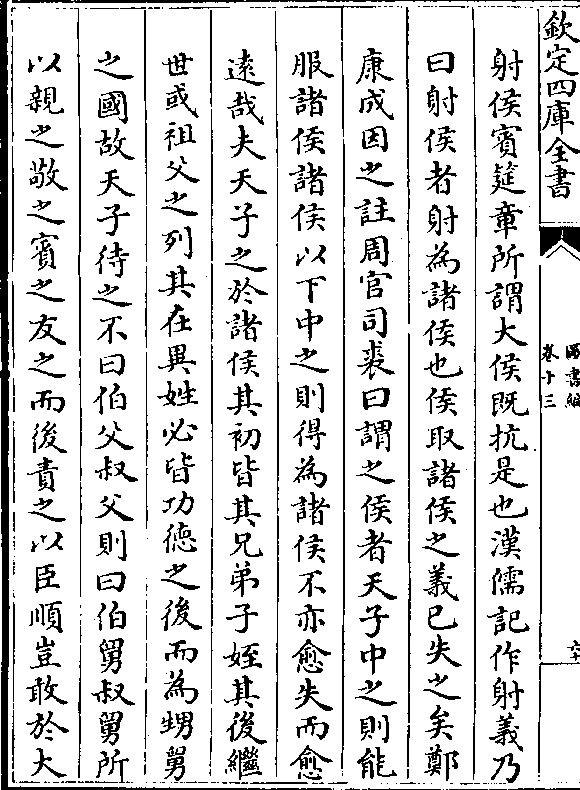 欽定四庫全書
圖書編
卷十三
射侯賓筵章所謂大侯既抗是也漢儒記作射義乃
曰射侯者射為諸侯也侯取諸侯之義已失之矣鄭
康成因之註周官司裘曰謂之侯者天子中之則能
服諸侯諸侯以下中之則得為諸侯不亦愈失而愈
逺哉夫天子之於諸侯其初皆其兄弟子姪其後繼
世或祖父之列其在異姓必皆功德之後而為甥舅
之國故天子待之不曰伯父叔父則曰伯舅叔舅所
以親之敬之賓之友之而後責之以臣順豈敢於大